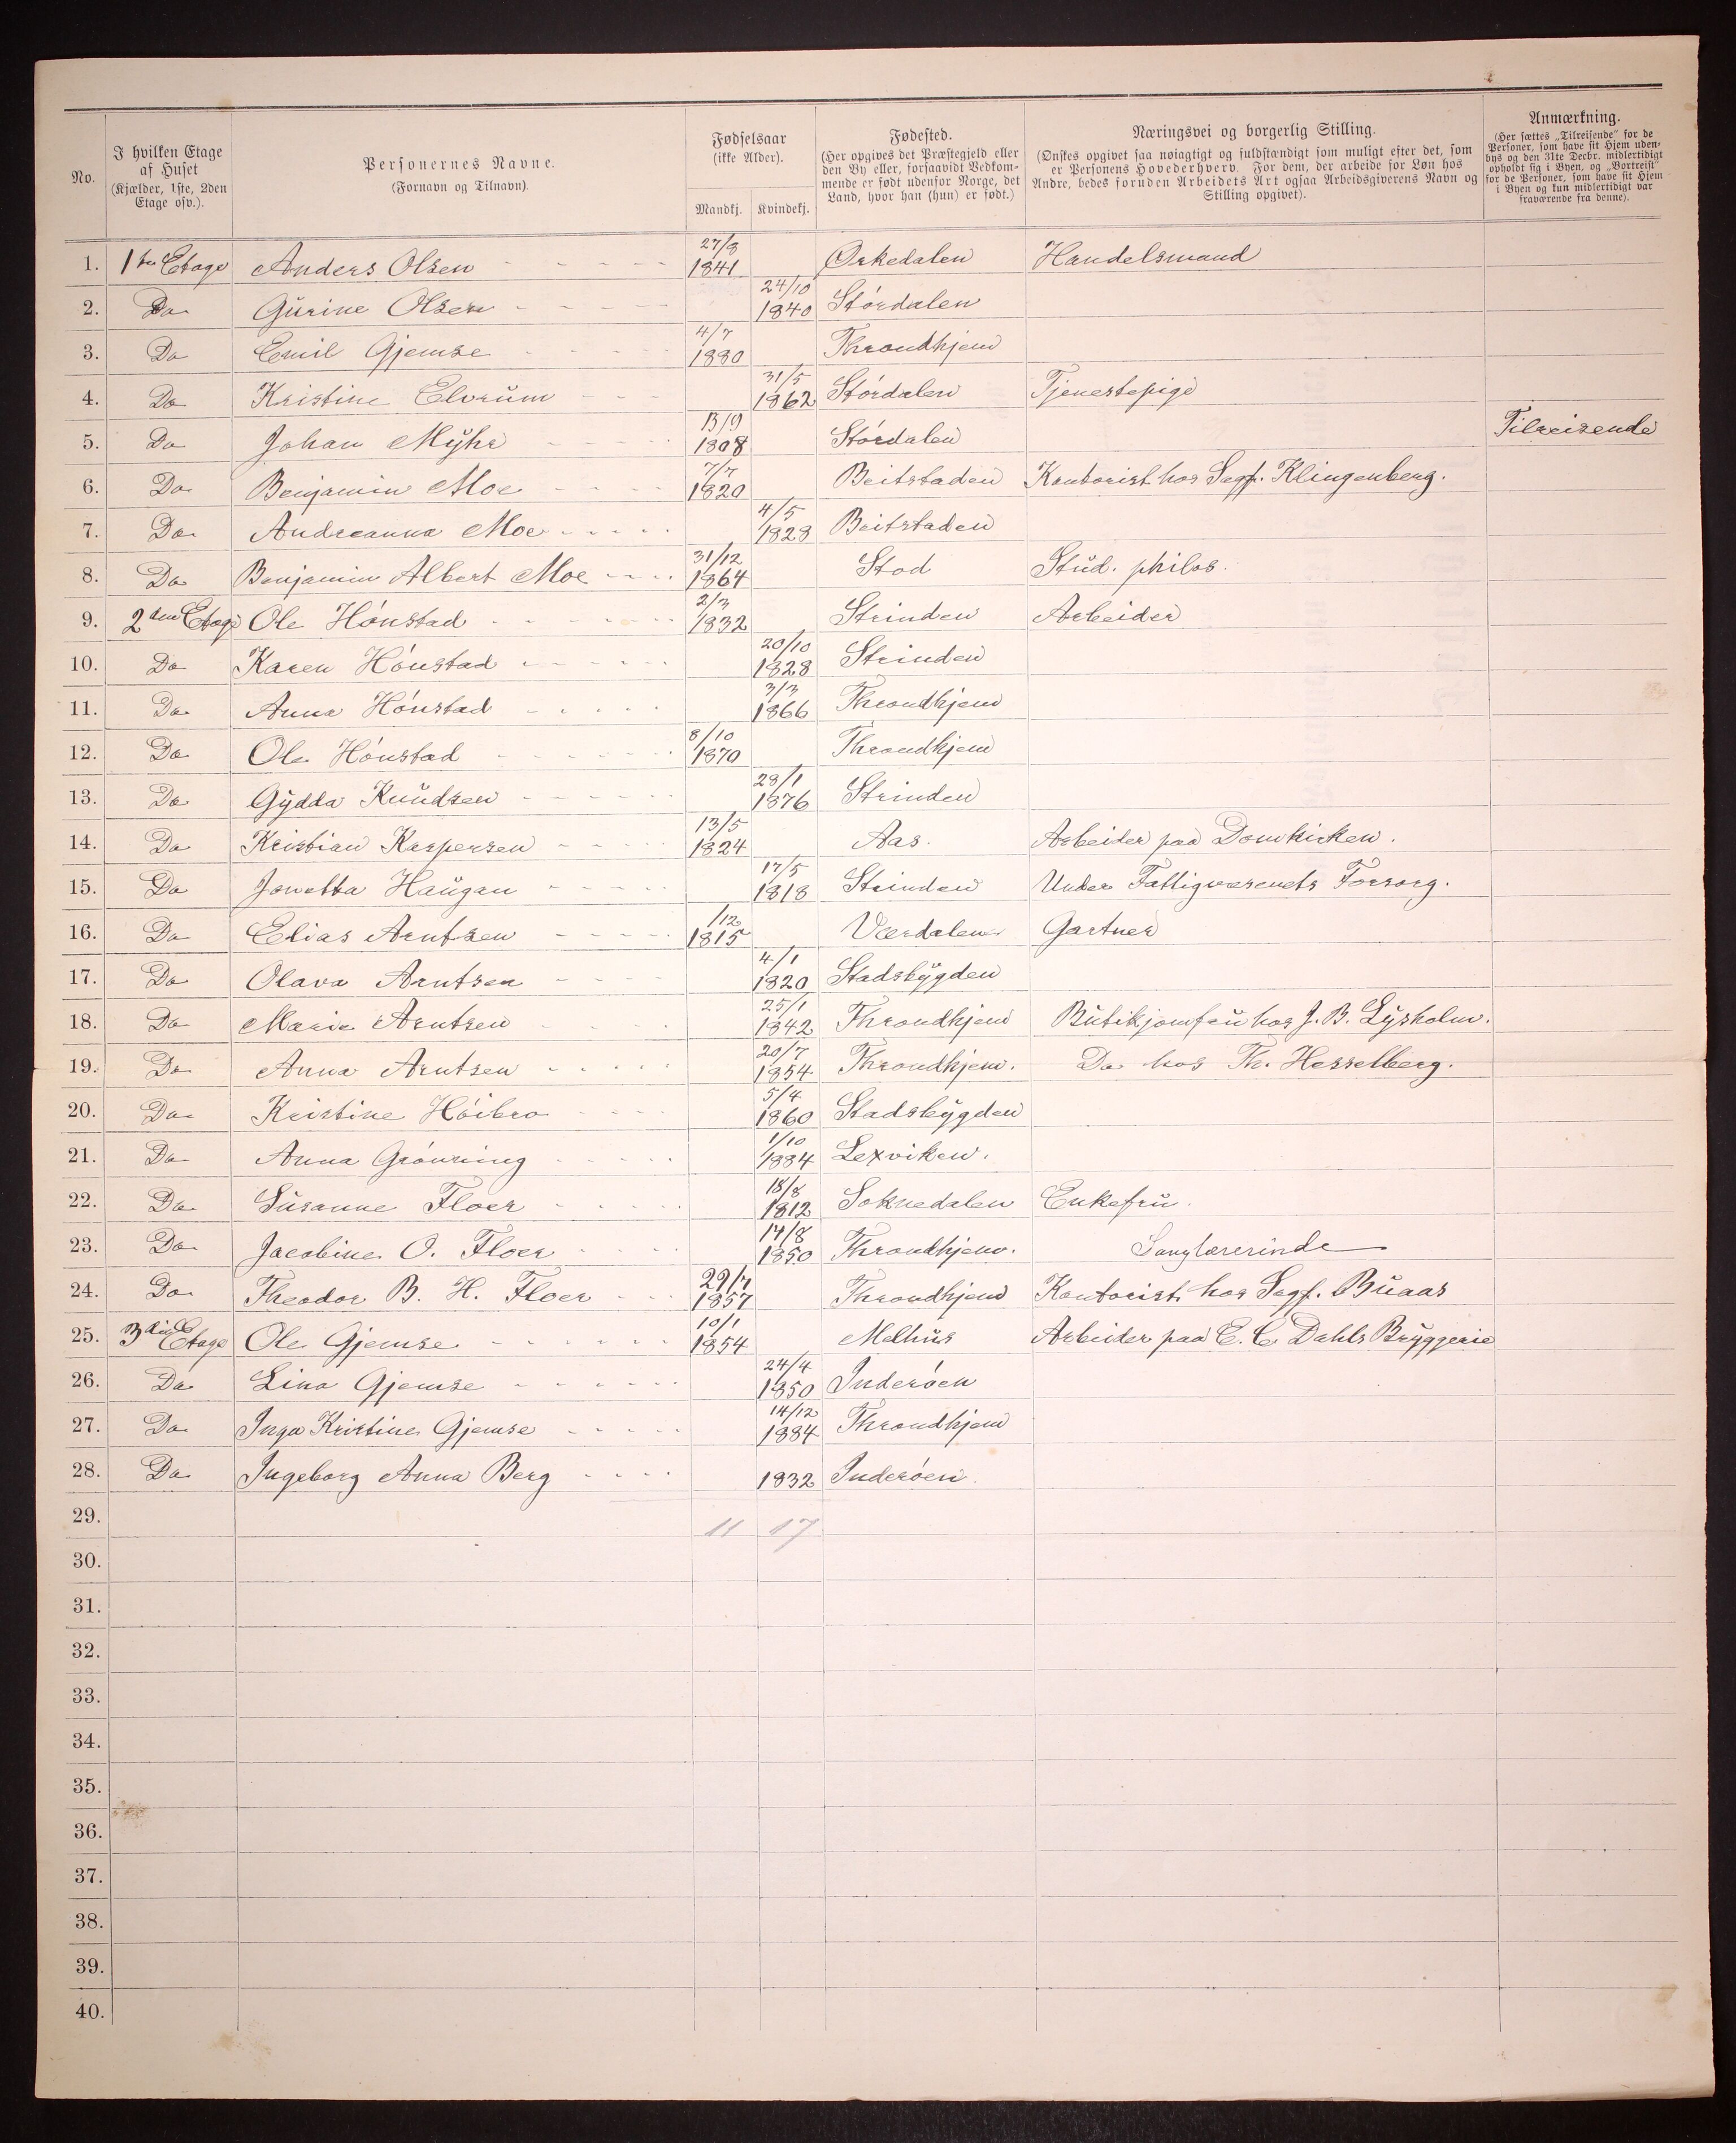 No.
I hvilken Etage
af Huset
(Kjælder, 1ste, 2den
Etage osv.).
Personernes Navne.
(Fornavn og Tilnavn).
Fødselsaar
(ikke Alder).
Mandkj. Kvindekj.
Fødested.
(Her opgives det Præstegjeld eller
den By eller, forsaavidt Vedkom-
mende er født udenfor Norge, det
Land, hvor han (hun) er født.)
Næringsvei og borgerlig Stilling.
(Ønskes opgivet saa nøiagtigt og fuldstændigt som muligt efter det, som
er Personens Hovederhverv. For dem, der arbeide for Løn hos
Andre, bedes foruden Arbeidets Art ogsaa Arbeidsgiverens Navn og
Stilling opgivet).
Anmærkning.
(Her sættes „Tilreisende” for de
Personer, som have sit Hjem uden-
bys og den 31te Decbr. midlertidigt
opholdt sig i Byen, og „Bortreist”
for de Personer, som have sit Hjem
i Byen og kun midlertidigt var
fraværende fra denne).
1. 1ste Etage Anders Olsen 27/8 1841 Orkedalen Handelsmand
2. Do Gurine Olsen 24/10 1840 Stórdalen
3. Do Emil Gjemse 4/7 1880 Throndhjem
4. Do Kristine Elvrum 31/5 1862 Stórdalen Tjenestepige
5. Do Johan Myhr 13/9 1808 Stórdalen Tilreisende
6. Do Benjamin Moe 7/7 1820 Beitstaden Kontorist hos Sagf. Klingenberg.
7. Do Andreanna Moe 4/5 1828 Beitstaden
8. Do Benjamin Albert Moe 31/12 1864 Stod Stud. philos.
9. 2den Etage Ole Hónstad 2/3 1832 Strinden Arbeider
10. Do Karen Hónstad 20/10 1828 Strinden
11. Do Anna Hónstad 3/3 1866 Throndhjem
12. Do Ole Hónstad 8/10 1870 Throndhjem
13. Do Gydda Knudsen 28/1 1876 Strinden
14. Do Kristian Kaspersen 13/5 1824 Aas. Arbeider paa Domkirken.
15. Do Jonetta Haugan 17/5 1818 Strinden Under Fattigvæsenets Forsorg.
16. Do Elias Arntsen /12 1815 Værdalen Gartner
17. Do Olava Arntsen 4/1 1820 Stadsbygden
18. Do Marie Arntsen 25/1 1842 Throndhjem Butikjomfru hos J. B. Lysholm.
19. Do Anna Arntsen 20/7 1854 Throndhjem. Do hos Th. Hesselberg.
20. Do Kristine Hóibro 5/4 1860 Stadsbygden
21. Do Anna Grónning 1/10 1884 Lexviken.
22. Do Susanne Floer 18/8 1812 Soknedalen Enkefru.
23. Do Jacobine O. Floer 14/8 1850 Throndhjem. Sanglærerinde
24. Do Theodor B. H. Floer 29/7 1857 Throndhjem Kontorist hos Sagf. Buaas
25. 3die Etage Ole Gjemse 10/1 1854 Melhus Arbeider paa E. C. Dahls Bryggerie
26. Do Lina Gjemse 24/4 1850 Inderóen
27. Do Inga Kristine Gjemse 14/12 1884 Throndhjem
28. Do Ingeborg Anna Berg 1832 Inderóen.
29. 11 17
30.
31.
32.
33.
34.
35.
36.
37.
38.
39.
40.